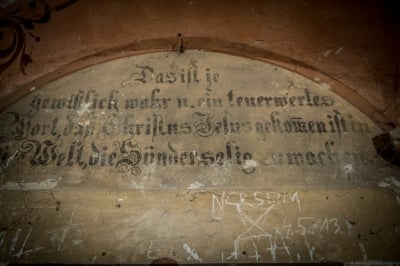 Das ist je
gewißlich wahr u. ein teuerwertes
Wort, daß Christus Jesus gekom̅en ist in
Welt, die Sünder selig zu machen.